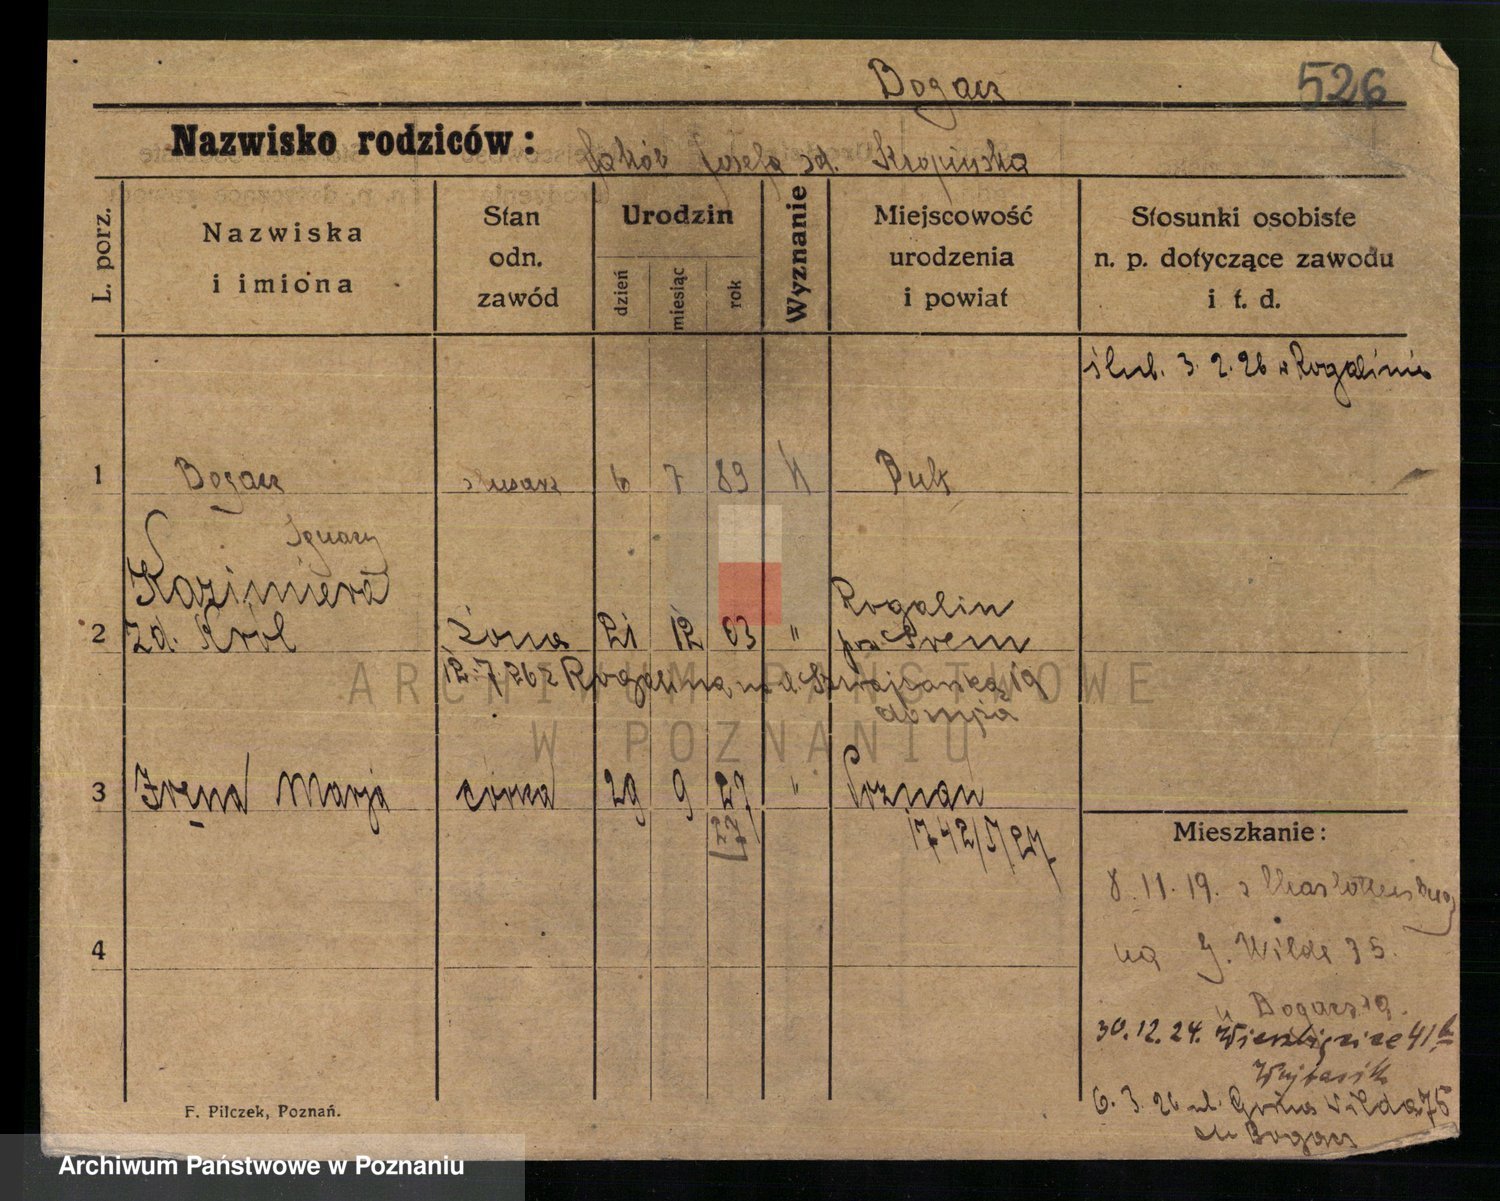 Bogacz
526
Nazwisko rodziców:
Jakób Józefa zd. Kropińska
L. porz.
Nazwiska
i imiona
Stan
odn.
zawód
Urodzin
dzień
miesiąc
rok
Wyznanie
Miejscowość
urodzenia
i powiat
Stosunki osobiste
n. p. dotyczące zawodu
i t. d.
ślub. 3. 2. 26 w Rogalinie
1 Bogacz ślusarz 6 7 89 K Buk
Ignacy
Kazimiera
2 zd. Król żona 21 12 03 " Rogalin
pow Śrem
12.7.26 z Rogalina 19
3 Irena Marja córka 29 9 27 " Poznań
1742/V/27
4
Mieszkanie:
8. 11. 19. z Charlottenburg
na G. Wilde 35.
u Bogacz 19.
30.12.24. Wierzbięcice 41 b
Wojtasik
6. 3. 26 ul. Górna Wilda 75
Bogacz
F. Pilczek, Poznań.
ARCHIWUM PAŃSTWOWE
W POZNANIU
Archiwum Państwowe w Poznaniu